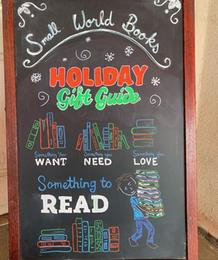 Small World Books
HOLIDAY
Gift Guide
Something You Something you Something you
WANT NEED LOVE
Something to
READ